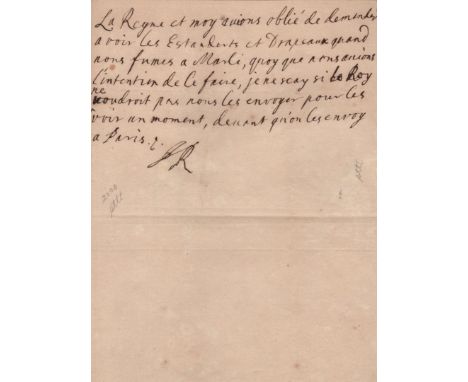 La Reyne et moy avions oblié de demander
a voir les Estanderts et Drapeaux quand
nous fumes a Marli, quoy que nous avions
l'intention de le faire, je ne scay si le Roy
ne
voudroit pas nous les envoyer pour les
voir un moment, devant qu'on les envoy
a Paris.
JR